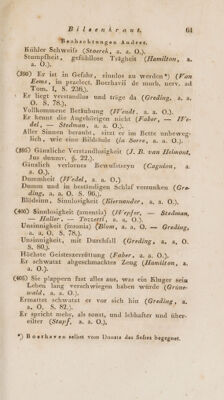 Bilsenkraut. 61
Beobachtungen Andrer.
Kühler Schweiß (Stoerck, a. a. O.).
Stumpfheit, gefühllose Trägheit (Hamilton, a.
a. O.).
(390) Er ist in Gefahr, sinnlos zu werden *) (Van
Eems, in praelect. Boerhavii de morb. nerv. ad
Tom. I, S. 236.).
Er liegt verstandlos und träge da (Greding, a. a.
O. S. 78.).
Vollkommene Betäubung (Wendt, a. a. O.).
Er kennt die Angehörigen nicht (Faber, — We-
del, — Stedman, a. a. O.).
Aller Sinnen beraubt, sitzt er im Bette unbeweg-
lich, wie eine Bildsäule (la Serre, a. a. O.).
Gänzliche Verstandlosigkeit (J. B. van Helmont,
Jus duumv. §. 22.).
Gänzlich verlornes Bewußtseyn (Cagnion, a.
a. O.).
Dummheit (Wedel, a. a. O.).
Dumm und in beständigen Schlaf versunken (Gre-
ding, a. a. O. S. 96.).
Blödsinn, Sinnlosigkeit (Kiernander, a. a. O.).
(400) Sinnlosigkeit (amentia) (Wepfer, — Stedman,
— Haller, — Tozzetti, a. a. O.).
Unsinnigkeit (insania) (Blom, a. a. O. — Greding,
a. a. O. S. 78.).
Unsinnigkeit, mit Durchfall (Greding, a. a. O.
S. 80.).
Höchste Geisteszerrüttung (Faber, a. a. O.).
Er schwatzt abgeschmacktes Zeug (Hamilton, a.
a. O.).
(405) Sie plappern fast alles aus, was ein Kluger sein
Leben lang verschwiegen haben würde (Grüne-
wald, a. a. O.).
Ermattet schwatzt er vor sich hin (Greding, a.
a. O. S. 82.).
Er spricht mehr, als sonst, und lebhafter und über-
eilter (Stapf, a. a. O.).
*) Boerhaven selbst vom Dunste des Saftes begegnet.